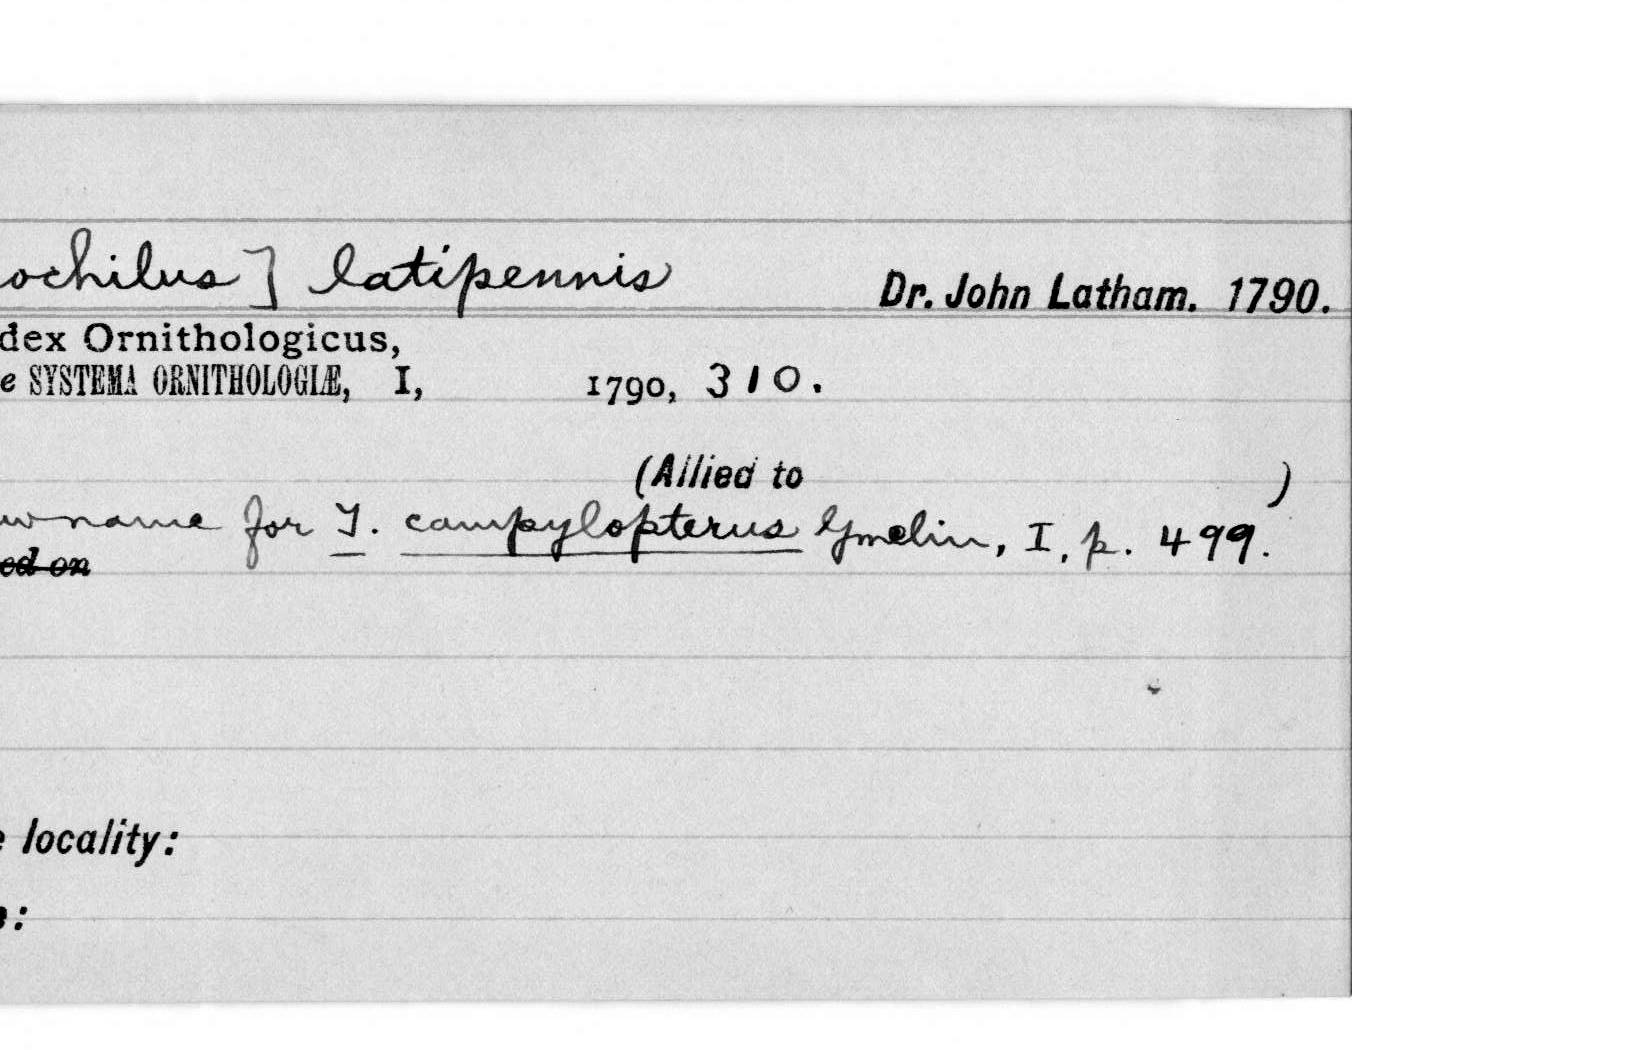 ochilus] latipennis Dr. John Latham. 1790.
dex Ornithologicus,
e SYSTEMA ORNITHOLOGIÆ, I, 1790, 310.
(Allied to )
w name for T. campylopterus Gmelin, I, p. 499.
ed on
e locality:
: